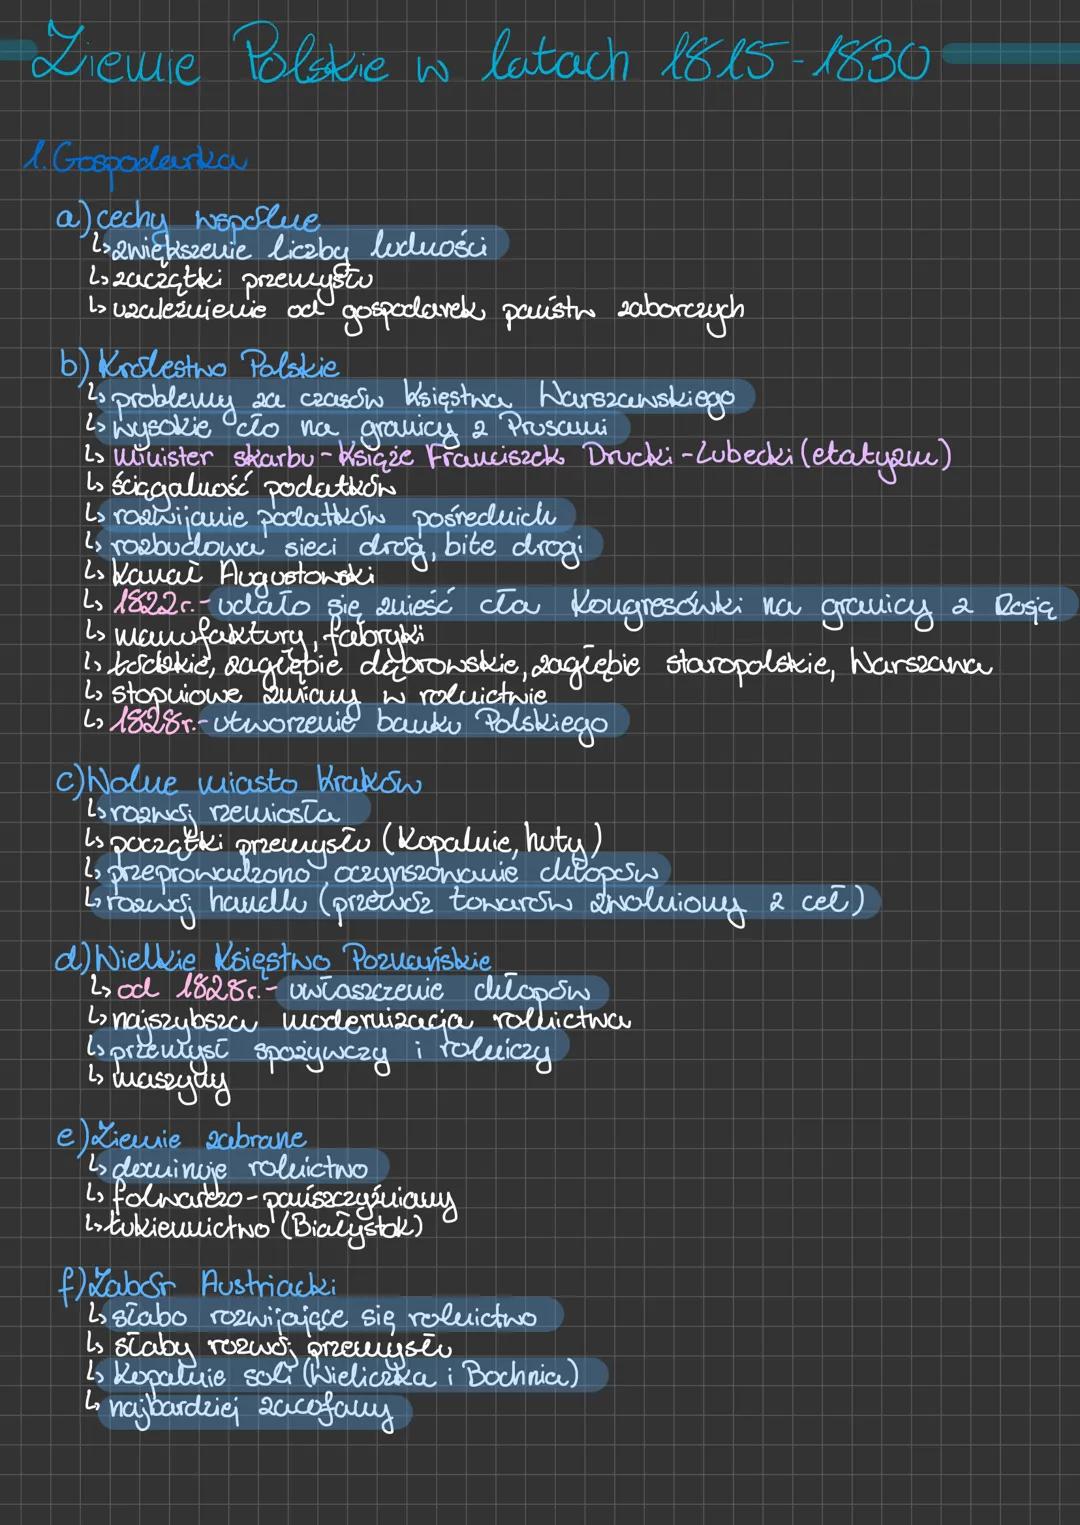 Ziemie Polskie w latach 1815-1830
1. Gospodarka
a) cechy wspólne
↳ zwiększenie liczby ludności
↳ zaczątki przemysłu
↳ uzależnienie od gospodarek państw zaborczych
b) Królestwo Polskie
↳ problemy za czasów Księstwa Warszawskiego
↳ wysokie cło na granicy z Prusami
↳ minister skarbu - Książe Franciszek Drucki - Lubecki (etatyzm)
↳ ściągalność podatków
↳ rozwijanie podatków pośrednich
↳ rozbudowa sieci dróg, bite drogi
↳ Kanał Augustowski
↳ 1822r. - udało się znieść cła Kongresówki na granicy z Rosją
↳ manufaktury, fabryki
↳ Łódzkie, zagłębie dąbrowskie, zagłębie staropolskie, Warszawa
↳ stopniowe zmiany w rolnictwie
↳ 1828r. - utworzenie banku Polskiego
c) Wolne miasto Kraków
↳ rozwój rzemiosła
↳ początki przemysłu (Kopalnie, huty)
↳ przeprowadzono oczynszowanie chłopów
↳ rozwój handlu (przewóz towarów zwolniony z ceł)
d) Wielkie Księstwo Poznańskie
↳ od 1828r. - uwłaszczenie chłopów
↳ najszybsza modernizacja rolnictwa
↳ przemysł spożywczy i rolniczy
↳ maszyny
e) Ziemie zabrane
↳ dominuje rolnictwo
↳ folwarczo - pańszczyźniany
↳ łukiennictwo (Białystok)
f) Zabór Austriacki
↳ słabo rozwijające się rolnictwo
↳ słaby rozwój przemysłu
↳ Kopalnie soli (Wieliczka i Bochnia)
↳ najbardziej zacofany